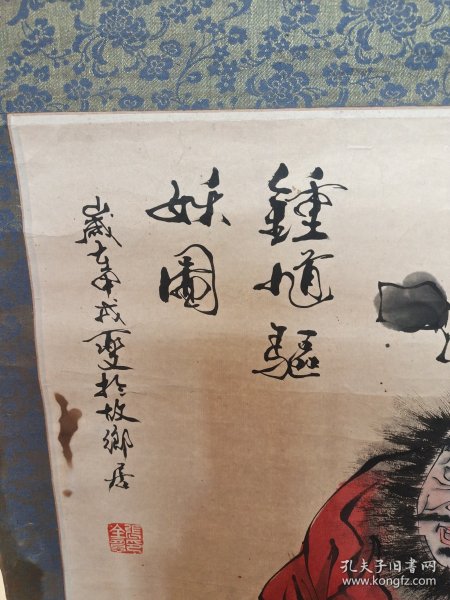 鍾馗驅
妖圖
歲在甲戌夏於故鄉居
孔夫子旧书网
www.kongfz.com